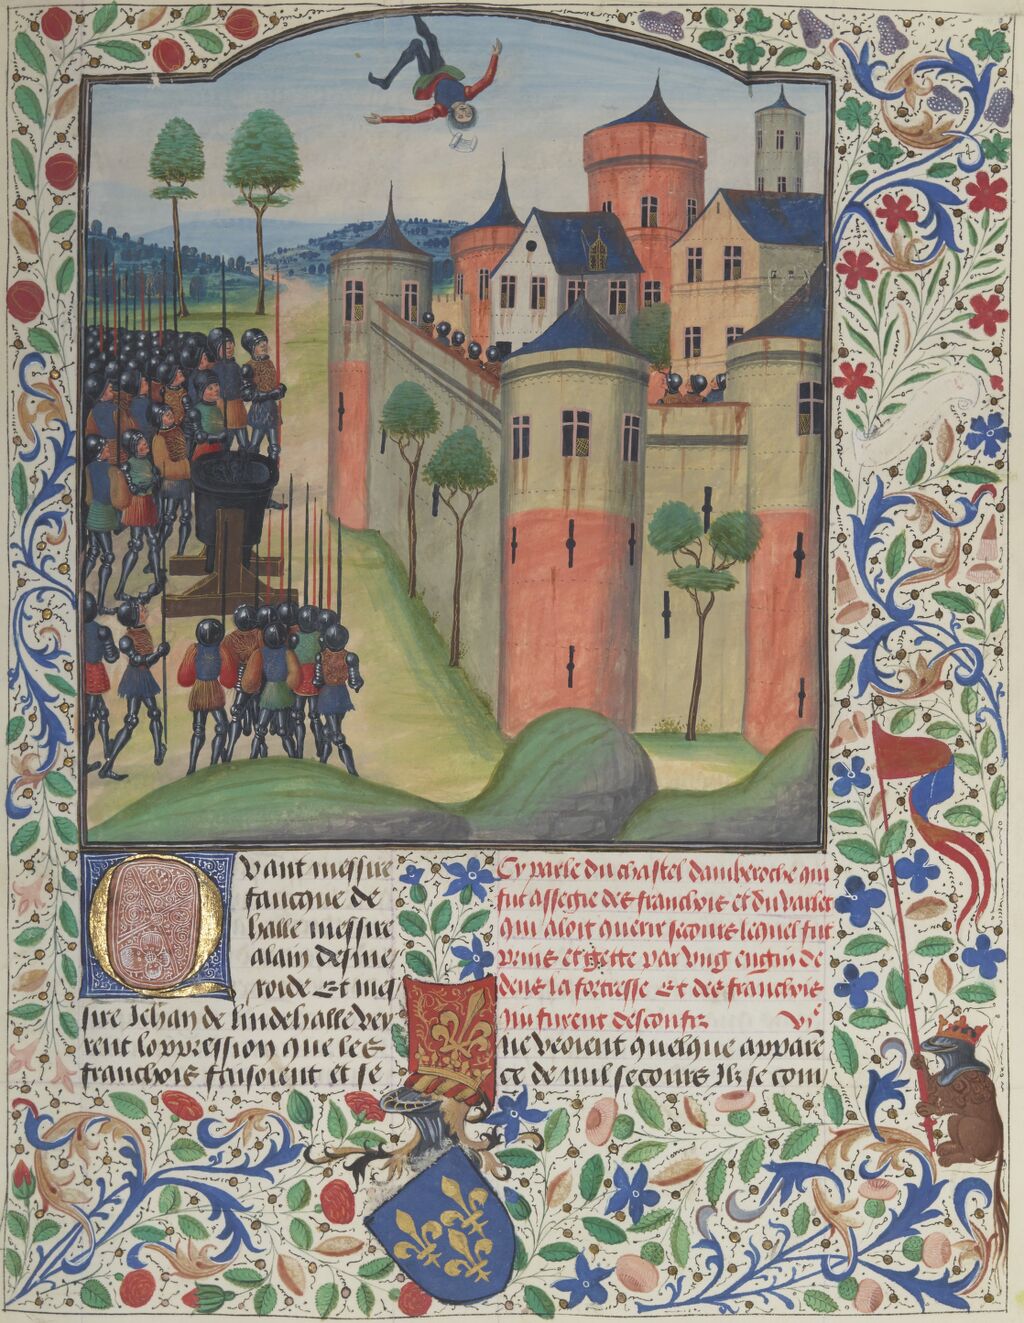 Quant messire
faucque de
halle messire
alain desine
roide Et mes
sire Jehan de lindehalle vey
rent loppression que les
franchois faisoient et se
Cy parle du chastel dauberoche qui
fut assegie des franchois et du varlet
qui aloit querir secours lequel fut
prins et gette par vng engin de
dens la forteresse Et des franchois
qui furent desconfiz vjc
ne veoient quelque apparē
ce de nul secours Ilz se com